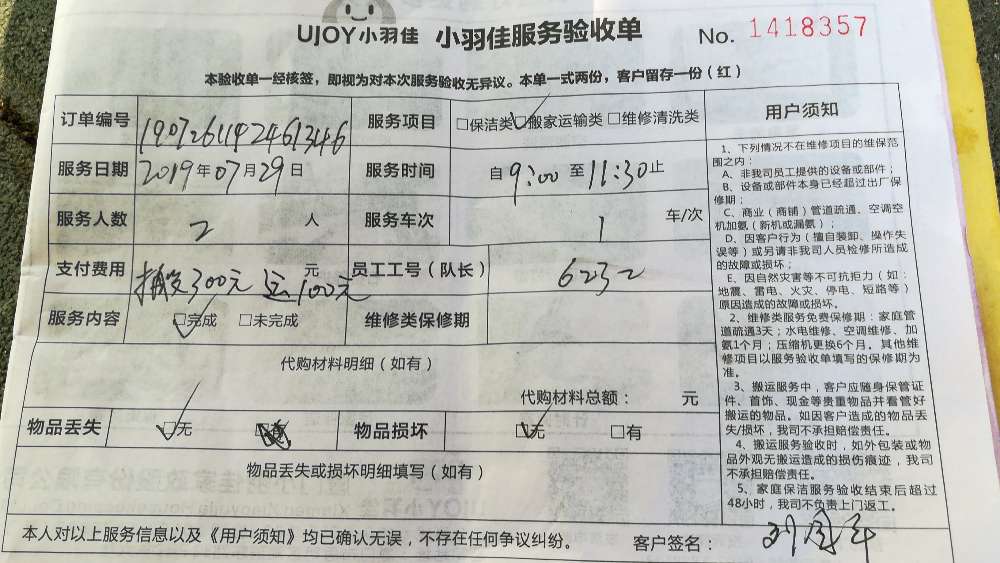 UJOY小羽佳 小羽佳服务验收单 No. 1418357
本验收单一经核签，即视为对本次服务验收无异议。本单一式两份，客户留存一份（红）
订单编号 190726119246 1346 服务项目 □保洁类 □搬家运输类 □维修清洗类
服务日期 2019年07月29日 服务时间 自9:00至11:30止
服务人数 2 人 服务车次 1 车/次
支付费用 搬发300元 运100元 元 员工工号（队长） 6232
服务内容 □完成 □未完成 维修类保修期
代购材料明细（如有）
代购材料总额： 元
物品丢失 □无 物品损坏 □无 □有
物品丢失或损坏明细填写（如有）
本人对以上服务信息以及《用户须知》均已确认无误，不存在任何争议纠纷。 客户签名：
用户须知
1、下列情况不在维修项目的维保范
围之内：
A、非我司员工提供的设备或部件；
B、设备或部件本身已经超过出厂保
修期；
C、商业（商铺）管道疏通、空调空
机加氨（新机或漏氨）；
D、因客户行为（擅自装卸、操作失
误等）或另请非我司人员检修所造成
的故障或损坏；
E、因自然灾害等不可抗拒力（如：
地震、雷电、火灾、停电、短路等）
原因造成的故障或损坏。
2、维修类服务免费保修期：家庭管
道疏通3天；水电维修、空调维修、加
氨1个月；压缩机更换6个月。其他维
修项目以服务验收单填写的保修期为
准。
3、搬运服务中，客户应随身保管证
件、首饰、现金等贵重物品并看管好
搬运的物品。如因客户造成的物品丢
失/损坏，我司不承担赔偿责任。
4、搬运服务验收时，如外包装或物
品外观无搬运造成的损伤痕迹，我司
不承担赔偿责任。
5、家庭保洁服务验收结束后超过
48小时，我司不负责上门返工。